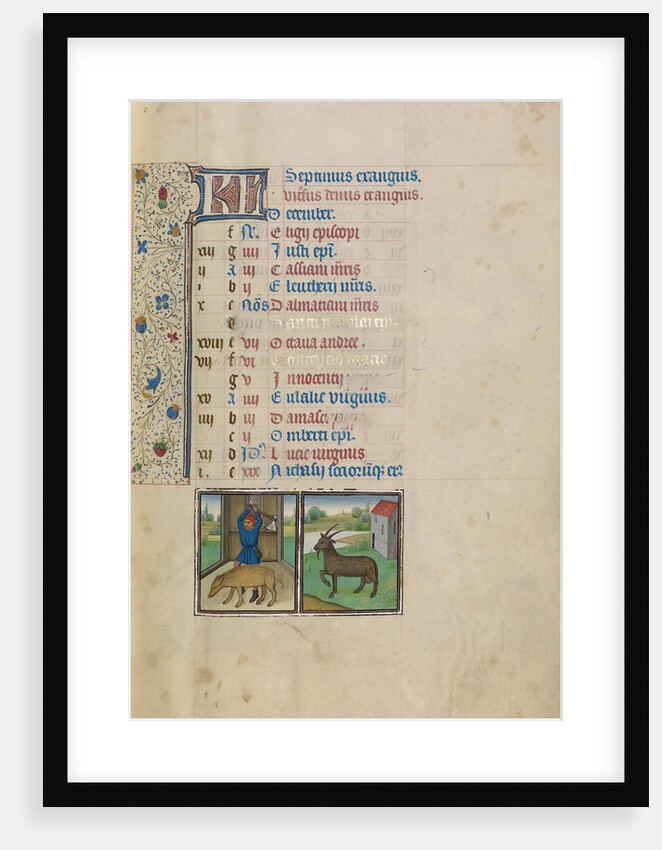 KL Septimus exanguis.
Virosus denus exanguis.
December.
f N. Eligij episcopi
xiii g iiii Iusti epi.
ii a iii Cassiani mris
b ii Eleutherij mris.
x c Nōs Dalmatiani mris
d
xviii e vii Octaua andree.
vii f vi Conceptio marie
g v Innocentij
xv a iiii Eulalie virginis.
iiii b iii Damasi
c ii Omberti epi.
xii d Id Lucie virginis
i. e xix Nichasij sociorūq; ei